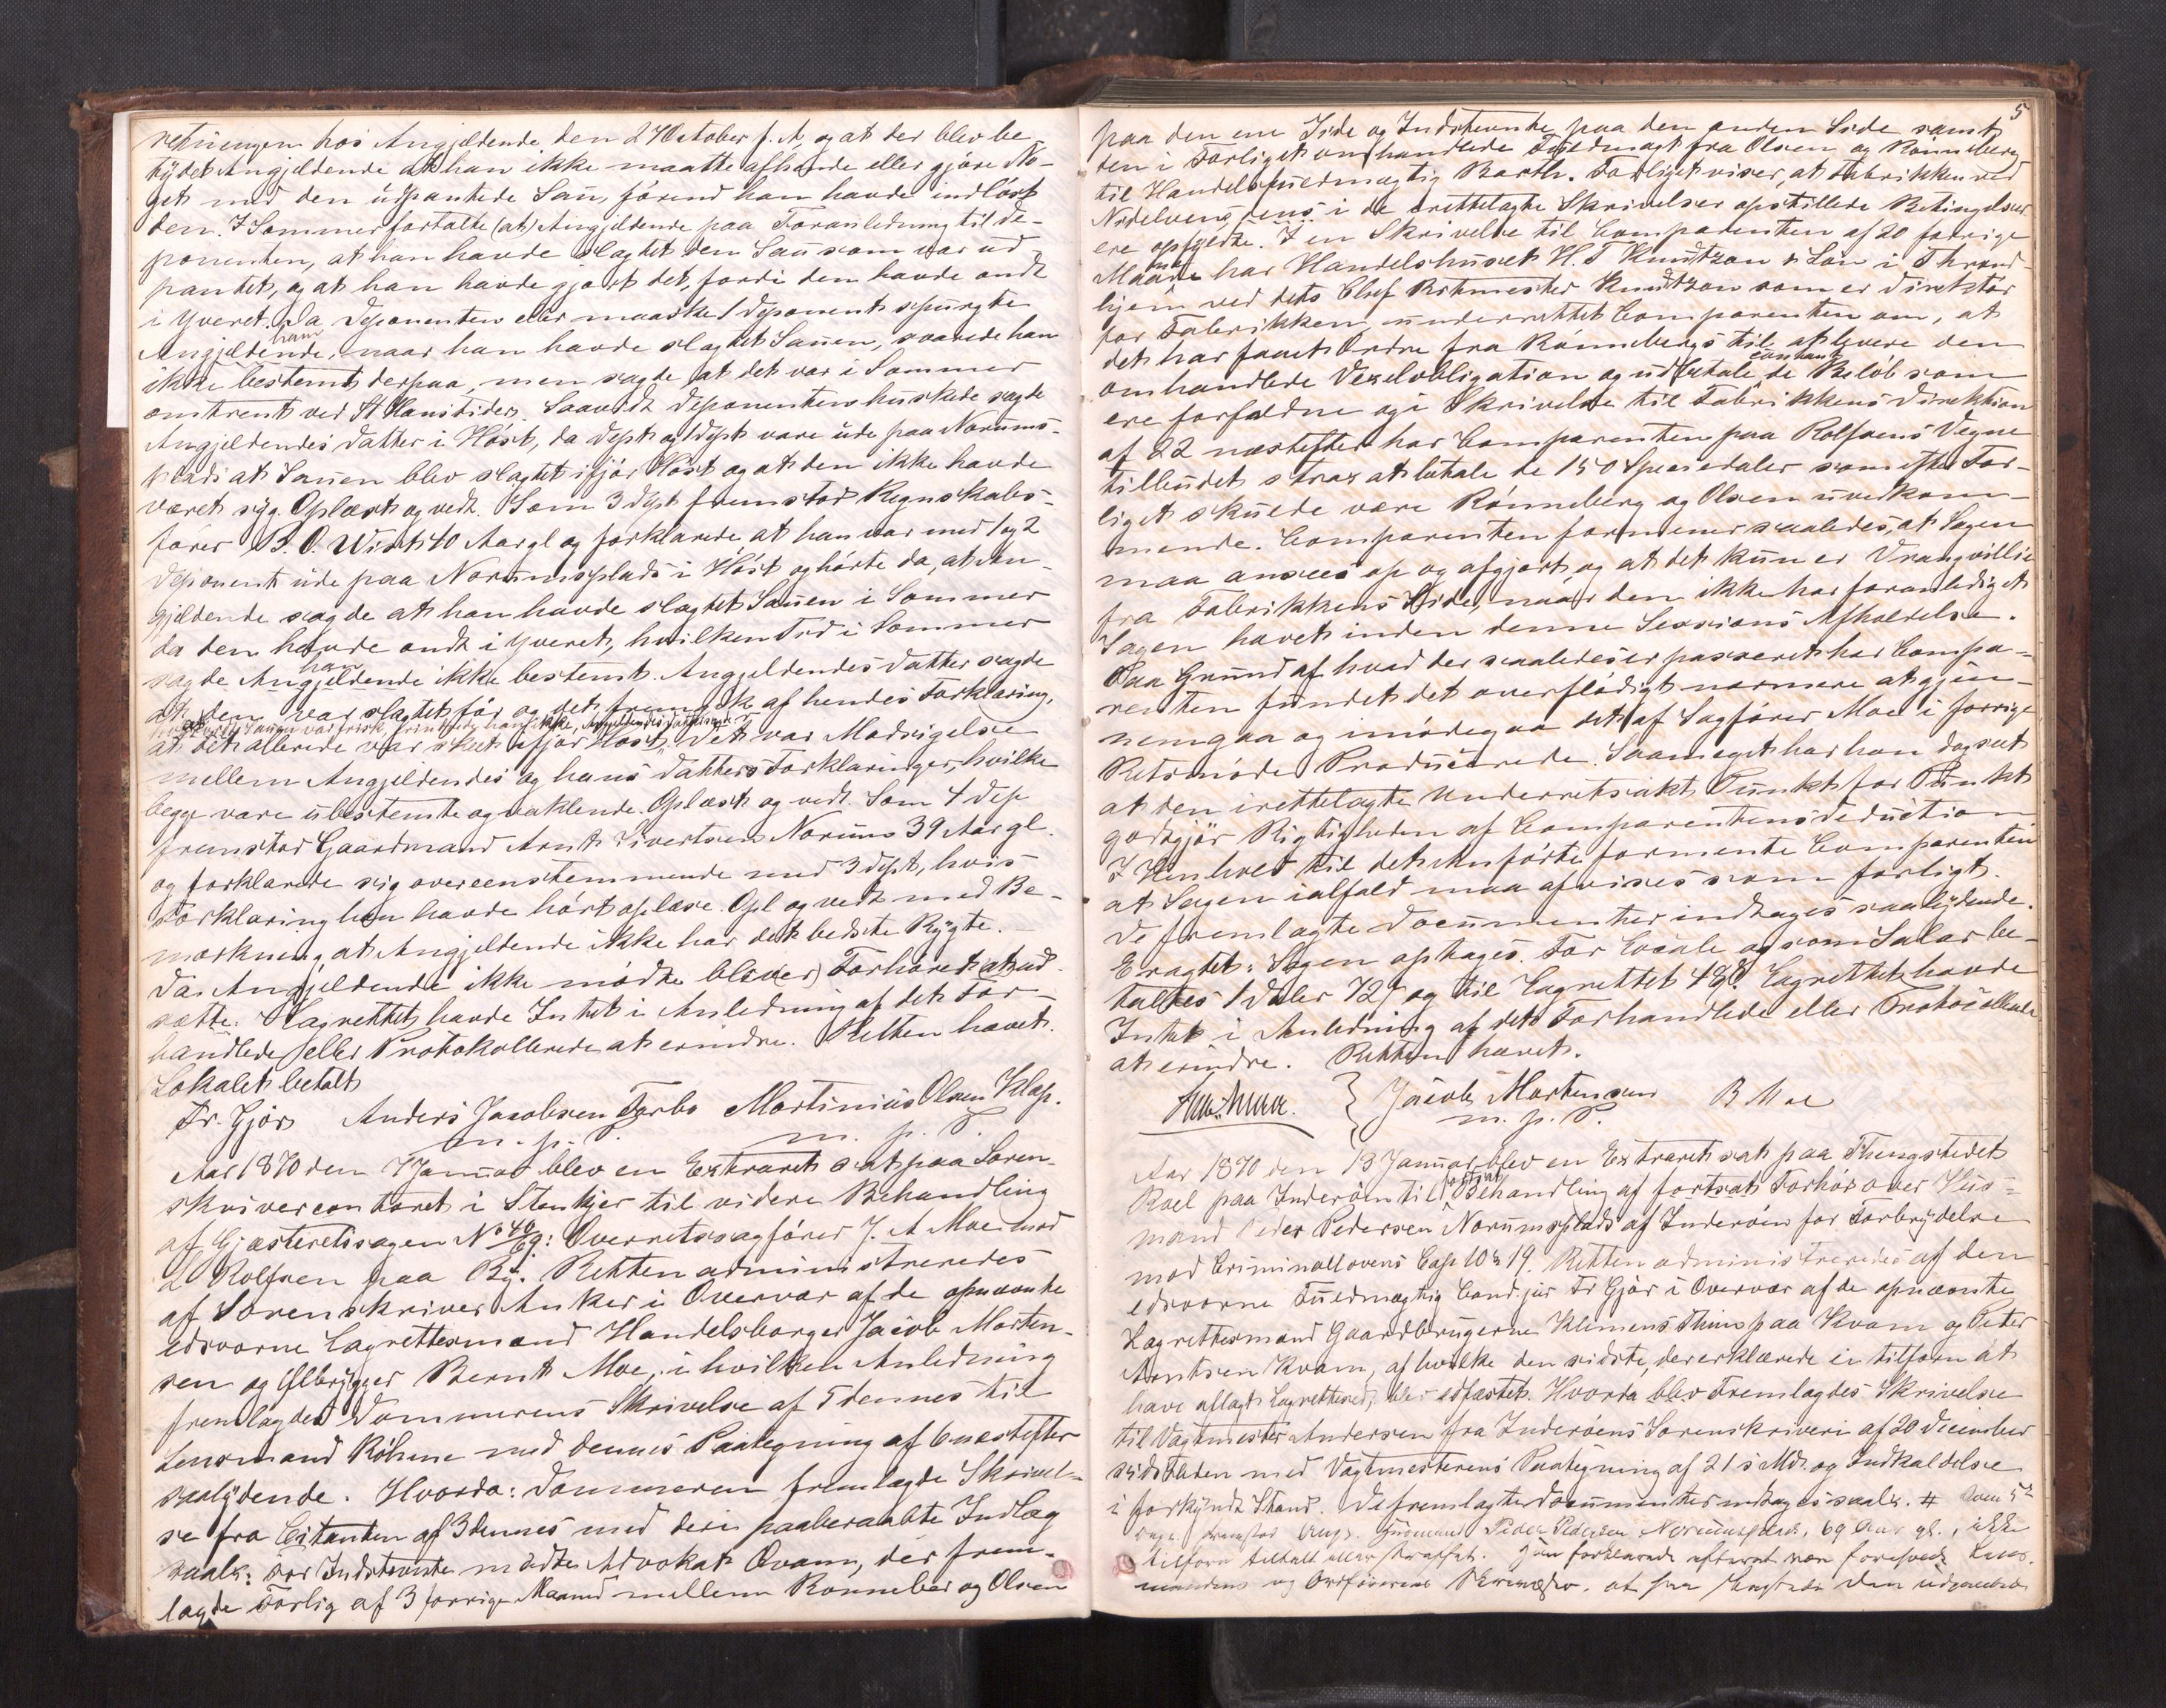 retningen hos Angjældende, den 27 October f. A, og at der blev be
tydet Angjeldende at han ikke maatte afhænde eller gjøre No-
get med den udpantede Sau, førend han havde indløst
den. I Sommer fortalte (at) Angjeldende paa Foranledning til De-
ponenten, at han havde slagtet den Sau som var ud
pantet, og at han havde gjort det, fordi den havde ondt
i Yveret. Da Deponenten eller maaske 1 Deponent spurgte
Angjældende, naar han havde slagtet Sauen, svarede han
ikke bestemt derpaa, men sagde at det var i Sommer
omtrent ved St Hanstider. Saavidt Deponenten huskede sagde
Angjeldendes Datter i Høst, da Dept og 1 Dept vare ude paa Norums-
plads at Sauen blev slagtet ifjor Høst og at den ikke havde
været syg. Oplæst og vedt. Som 3 Dept fremstod Regnskabs-
fører B. O. Wist 40 Aar gl og forklarede at han var med 1 og 2
Deponent ude paa Norumsplads i Høst og hørte da, at An-
gjeldende sagde at han havde slagtet Sauen i Sommer
da den havde ondt i Yveret, hvilken Tid i Sommer
sagde han Angjeldende ikke bestemt. Angjeldendes Datter sagde
at den var slagtet før og det fremgik af hendes Forklaring,
at det allerede var skeet ifjor Høst. Det var Modsigelse
mellem Angjeldendes og hans Datters Forklaringer, hvilke
begge vare ubestemte og vaklende. Oplæst og vedt. Som 4 Dep
fremstod Gaardmand Arnt Sivertsen Norum 39 Aar gl.
og forklarede sig overeenstemmende med 3 Dept, hvis
Forklaring han havde hørt oplæse. Opl og vedt med Be-
mærkning at Angjeldende ikke har det bedste Rygte.
Da Angjeldende ikke mødte blev(er) Forhøret at ud-
sætte. Lagrettet havde Intet i Anledning af det For-
handlede eller Protokollerede at erindre. Retten hævet.
Lokalet betalt
Fr. Gjør Anders Jacobsen Forbo Martinius Olsen Klæp.
m. p. P. m. p. P.
Aar 1870 den 7 Januar blev en Extraret sat paa Soren-
skrivercontoret i Stenkjer til videre Behandling
af Gjæsteretssagen No 40/69: Overretssagfører J. A Moe mod
L Rolfsen paa By. Retten administreredes
af Sorenskriver Anker i Overvær af de opnævnte
edsvorne Lagrettesmænd Handelsborger Jacob Morten-
sen og Ølbrygger Bernt Moe, i hvilken Anledning
fremlagdes Dommerens Skrivelse af 5 dennes til
Lensmand Röhme med dennes Paategning af 6 næstefter
saalydende. Hvorda: Dommeren fremlagde Skrivel-
se fra Citanten af 3 dennes med deri paaberaabte Indlæg
saal: For Indstevnte mødte Advokat Qvam, der frem-
lagde Forlig af 3 forrige Maaned mellem Ronneber og Olsen
5
paa den ene Side og Indstevnte paa den anden Side samt
den i Forliget omhandlede Fuldmagt fra Olsen og Rønneberg
til Handelsfuldmægtig Barth. Forliget viser, at Fabrikken ved
Nidelvens i de irettelagte Skrivelser opstillede Betingelser
ere opfyldte. I en Skrivelse til Comparenten af 20 forrige
Maaned har Handelshuset H. T Knudtzon & Søn i Thrond-
hjem ved dets Chef Ritmester Knudtzon som er Direktør
for Fabrikken, underrettet Comparenten om, at
det har faaet Ordre fra Rønnebergs til at levere den
omhandlede Vexelobligation og udbetale contant de Beløb som
ere forfaldne og i Skrivelse til Fabrikkens Direktion
af 22 næstefter har Comparenten paa Rolfsens Vegne
tilbudet strax at betale de 150 Speciedaler som efter For-
liget skulde være Rønneberg og Olsen uvedkom-
mende. Comparenten formener saaledes, at Sagen
maa ansees op og afgjort, og at det kun er Vrangvillie
fra Fabrikkens Side, naar den ikke har foranlediget
Sagen hævet inden denne Sessions Afholdelse.
Paa Grund af hvad der saaledes er passeret har Compa-
renten fundet det overflødigt nærmere at gjen-
nemgaa og imødegaa det af Sagfører Moe i forrige
Retsmøde Producerede. Saameget har han dog seet
at den irettelagte Underretsakt Punkt for Punkt
godtgjør Rigtigheden af Comparentens Deduction
I Henhold til det Anførte formente Comparenten
at Sagen ialfald maa afvises som forligt.
De fremlagte Documenter indtages saalydende.
Eragtet: Sagen optages. For Locale og som Salar be-
taltes 1 Daler 72 s og til Lagrettet 48 s. Lagrettet havde
Intet i Anledning af det Forhandlede eller Protocollerede
at erindre. Retten hævet.
Jacob Mortensen B Moe
m. p. P.
Aar 1870 den 13 Januar blev en Extraret sat paa Thingstedet
Roel paa Inderøen til fortsat Behandling af fortsat Forhør over Huus-
mand Peder Pedersen Norumsplads af Inderøen for Forbrydelse
mod Criminallovens Cap 10 § 19. Retten administreredes af den
edsvorne Fuldmægtig Cand. jur Fr Gjør i Overvær af de opnævnte
Lagrettesmænd Gaardbrugerne Klemens Thius paa Kvam og Peter
Arntsen Kvam, af hvilke den sidste, der erklærede ei tilforn at
have aflagt Lagrettesed, blev edfæstet. Hvorda blev Fremlagdes Skrivelse
til Vagtmester Andersen fra Inderøens Sorenskriveri af 20 December
sidstleden med Vagtmesterens Paategning af 21 s. Md. og Indkaldelse
i forkyndt Stand. De fremlagte Documenter indtages saal. # Som 5te
Depo. fremstod Angj. Huusmand Peder Pedersen Norumsplads, 69 Aar gl., ikke
tilforn tiltalt eller straffet. Han forklarede efterat være foreholdt Lens-
mandens og Ordførerens at han den udpantede